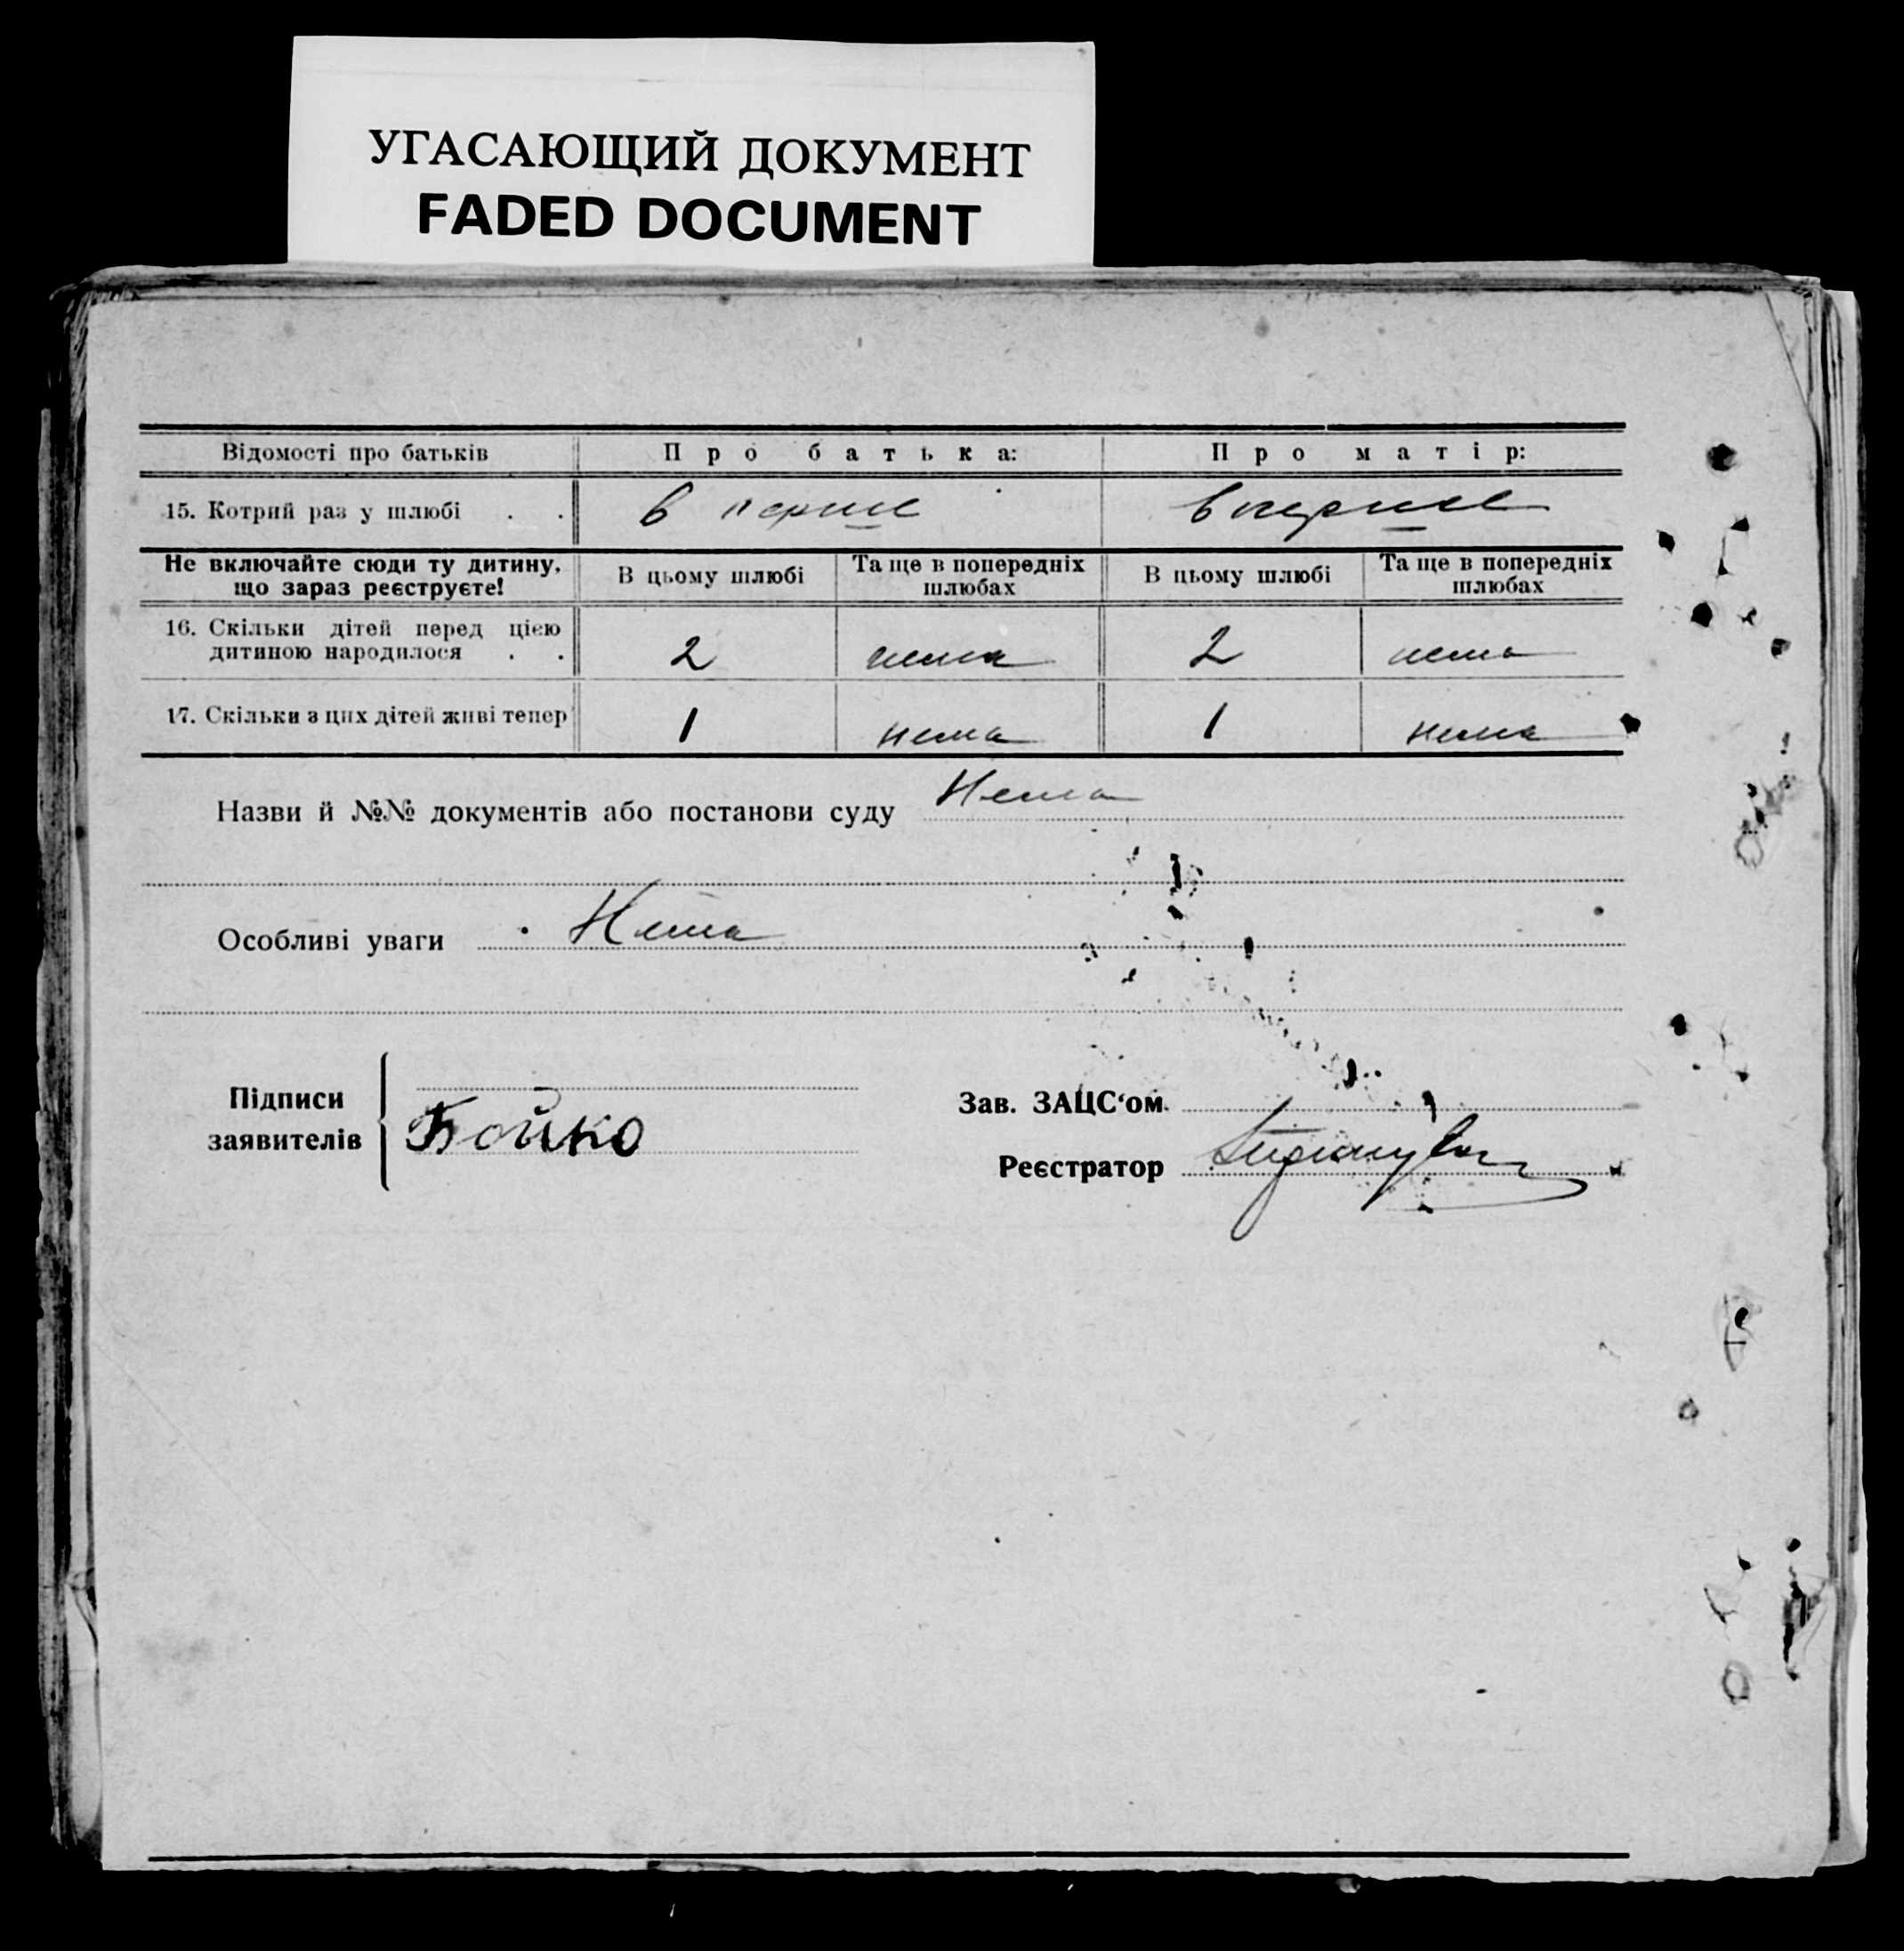 УГАСАЮЩИЙ ДОКУМЕНТ
FADED DOCUMENT
Відомості про батьків Про батька: Про матір:
15. Котрий раз у шлюбі . . в перше вперше
Не включайте сюди ту дитину, що зараз реєструєте! В цьому шлюбі Та ще в попередніх шлюбах В цьому шлюбі Та ще в попередніх шлюбах
16. Скільки дітей перед цією дитиною народилося . . 2 нема 2 нема
17. Скільки з цих дітей живі тепер 1 нема 1 нема
Назви й №№ документів або постанови суду Нема
Особливі уваги Нема
Підписи заявителів Бойко
Зав. ЗАЦС‘ом.
Реєстратор